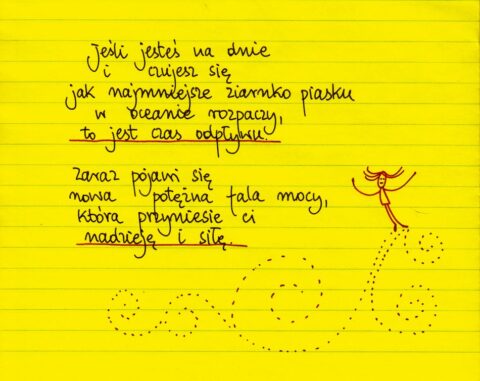 Jeśli jesteś na dnie
i czujesz się
jak najmniejsze ziarnko piasku
w oceanie rozpaczy,
to jest czas odpływu.
Zaraz pojawi się
nowa potężna fala mocy,
która przyniesie ci
nadzieję i siłę.